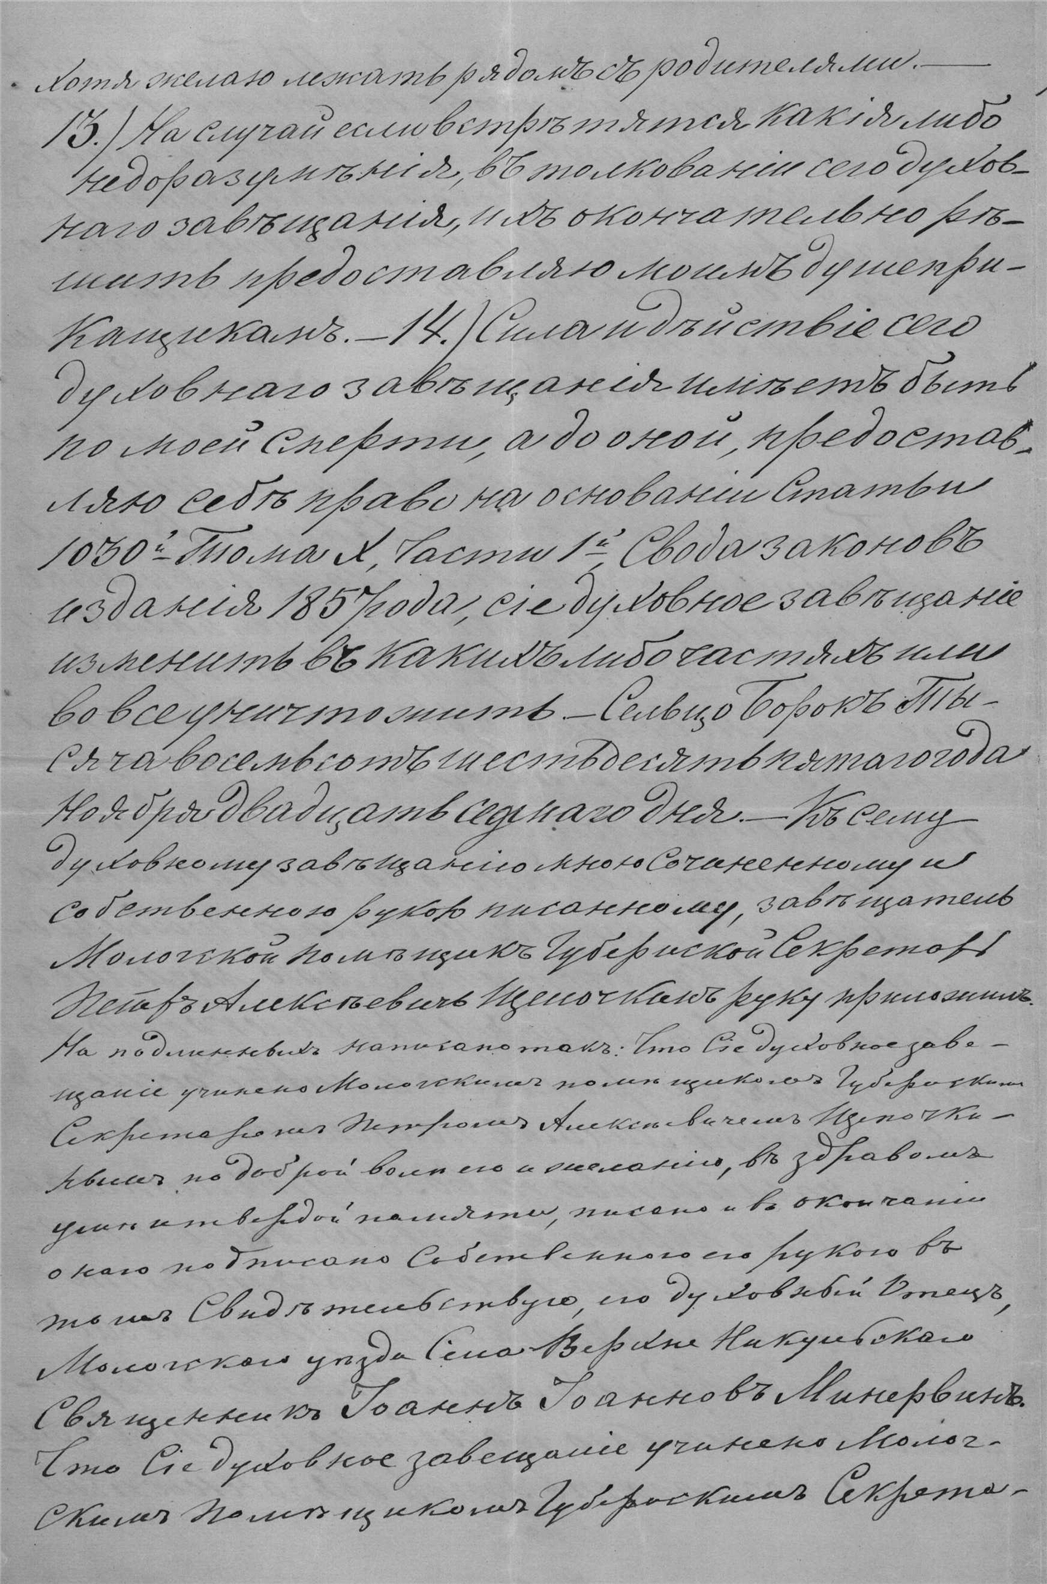 хотя желаю лежать рядомъ съ родителями.—
13.) На случай если встрѣтятся какія либо
недоразумѣнія, въ толкованіи сего духов-
наго завѣщанія, ихъ окончательно рѣ-
шить предоставляю моимъ душепри-
кащикамъ.—14.) Сила и дѣйствіе сего
духовнаго завѣщанія имѣетъ быть
по моей смерти, а до оной, предостав-
ляю себѣ право на основаніи Статьи
1030й Тома X, Части 1й, Свода законовъ
изданія 1857 года, сіе духовное завѣщаніе
изменить въ какихъ либо частяхъ или
вовсе уничтожить.—Сельцо Борокъ Ты-
сяча восемьсотъ шестьдесятъ пятаго года
Ноября двадцать седмаго дня.—Къ сему
духовному завѣщанію мною сочиненному и
собственною рукою писанному, завѣщатель
Мологской помѣщикъ Губернской Секретарь
Петръ Алексѣевичъ Щепочкинъ руку приложилъ.
На подлинныхъ написано такъ: Что Сіе духовное заве-
щаніе учинено Мологскимъ помѣщикомъ Губернскимъ
Секретаремъ Петромъ Алексѣевичемъ Щепочки-
нымъ по доброй воли его и желанію, въ здравомъ
умѣ и твердой памяти, писано и въ окончаніи
онаго подписано Собственною его рукою въ
томъ Свидѣтельствую, его духовный Отецъ,
Мологскаго уѣзда Села Верхне Никульскаго
Священникъ Іоаннъ Іоанновъ Минервинъ.
Что Сіе духовное завещаніе учинено Молог-
скимъ помѣщикомъ Губернскимъ Секрета-